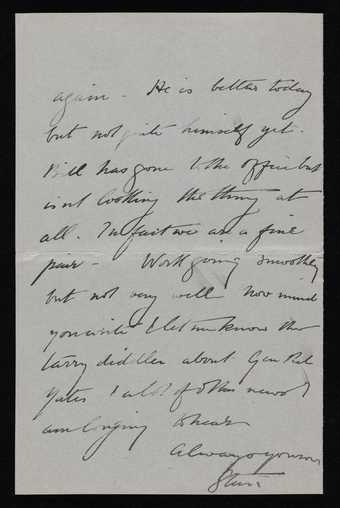 again - He is better today
but not quite himself yet.
Bill has gone to the office but
is not looking the thing at
all. In fact we are a fine
pair - Work going smoothly
but not very well now mind
you write & let me know the
about
Yates & all of other news I
am longing to hear
Always yours